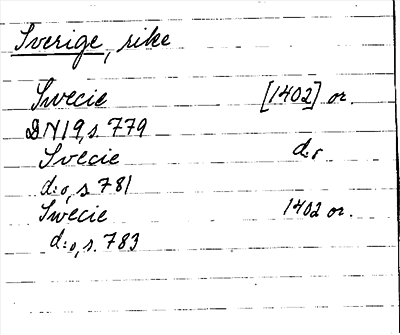 Sverige, rike
Swecie [1402] or.
DN19, s. 779
Svecie d:o
d:o, s 781
Swecie 1402 or.
d:o, s. 783